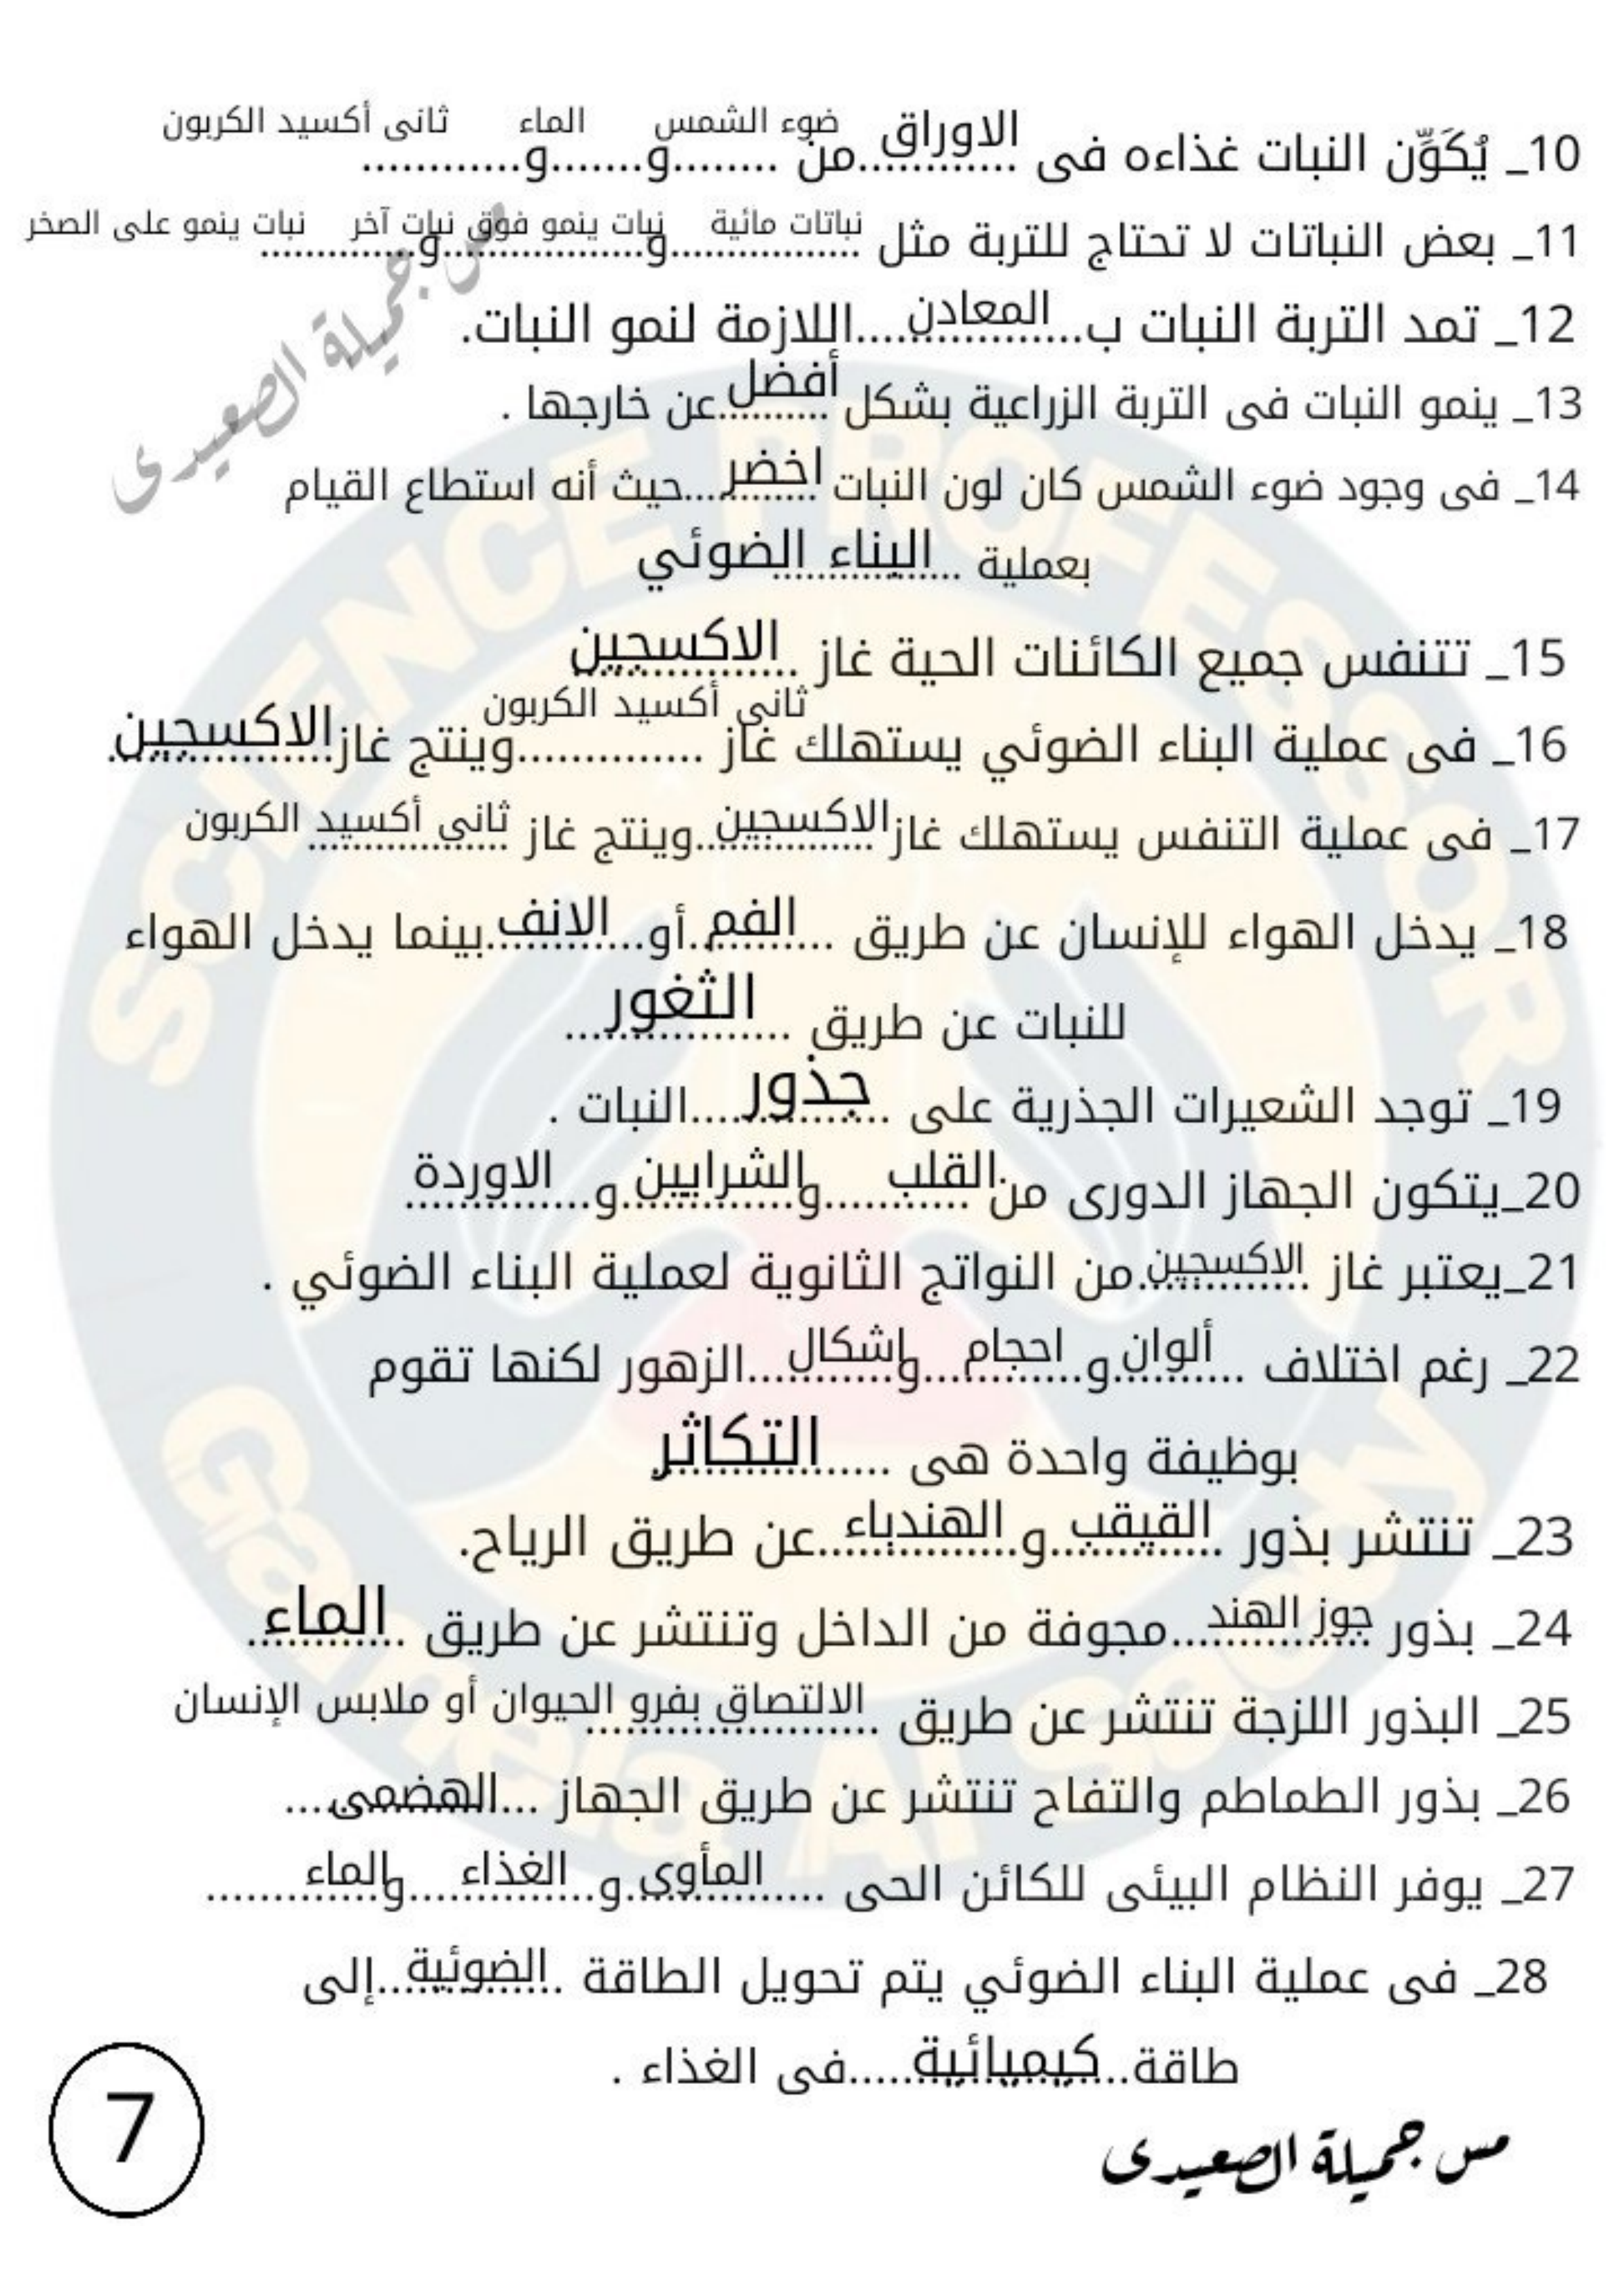 10_ يُكَوِّن النبات غذاءه فى الاوراق من ضوء الشمس و الماء و ثانى أكسيد الكربون
11_ بعض النباتات لا تحتاج للتربة مثل نباتات مائية و نبات ينمو فوق نبات آخر و نبات ينمو على الصخر
12_ تمد التربة النبات ب المعادن اللازمة لنمو النبات.
13_ ينمو النبات فى التربة الزراعية بشكل أفضل عن خارجها .
14_ فى وجود ضوء الشمس كان لون النبات اخضر حيث أنه استطاع القيام
بعملية البناء الضوئي
15_ تتنفس جميع الكائنات الحية غاز الاكسجين
16_ فى عملية البناء الضوئي يستهلك غاز ثانى أكسيد الكربون وينتج غاز الاكسجين
17_ فى عملية التنفس يستهلك غاز الاكسجين وينتج غاز ثانى أكسيد الكربون
18_ يدخل الهواء للإنسان عن طريق الفم أو الانف بينما يدخل الهواء
للنبات عن طريق الثغور
19_ توجد الشعيرات الجذرية على جذور النبات .
20_يتكون الجهاز الدورى من القلب و الشرايين و الاوردة
21_يعتبر غاز الاكسجين من النواتج الثانوية لعملية البناء الضوئي .
22_ رغم اختلاف ألوان و احجام و اشكال الزهور لكنها تقوم
بوظيفة واحدة هى التكاثر
23_ تنتشر بذور القيقب و الهندباء عن طريق الرياح.
24_ بذور جوز الهند مجوفة من الداخل وتنتشر عن طريق الماء
25_ البذور اللزجة تنتشر عن طريق الالتصاق بفرو الحيوان أو ملابس الإنسان
26_ بذور الطماطم والتفاح تنتشر عن طريق الجهاز الهضمى
27_ يوفر النظام البيئى للكائن الحى المأوى و الغذاء و الماء
28_ فى عملية البناء الضوئي يتم تحويل الطاقة الضوئية إلى
طاقة كيميائية فى الغذاء .
مس جميلة الصعيدى
7
مس جميلة الصعيدى
SCIENCE PROFESSOR
Gamela Al Saedy